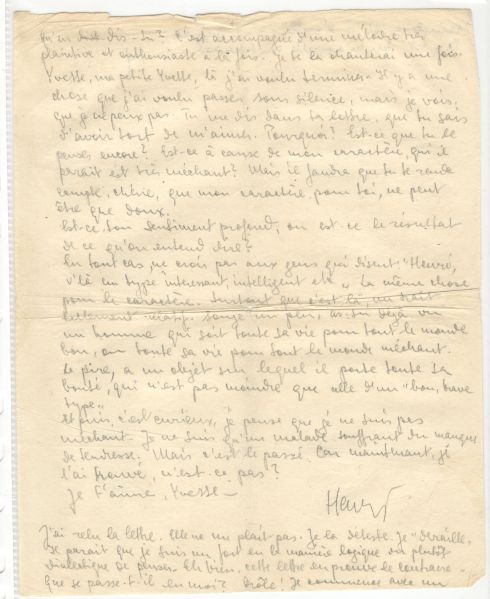 qu'en dois dis-tu? C'est accompagné d'une mélodie très
plaintive et enthousiaste à la fois. Je te la chanterai une fois.
Yvette, ma petite Yvette, là j'ai voulu terminer. Il y a une
chose que j'ai voulu passer sous silence, mais je vois,
que je ne peux pas. Tu me dis dans ta lettre, que tu sais
d'avoir tort de m'aimer. Pourquoi? Est-ce que tu le
penses encore? Est-ce à cause de mon caractère, qui il
paraît est très méchant? Mais il faudra que tu te rende
compte, chérie, que mon caractère, pour toi, ne peut
être que doux.
Est-ce ton sentiment profond, ou est-ce le résultat
de ce qu'on entend dire?
En tout cas, ne crois pas aux gens qui disent "Henri,
v'là un type intéressant, intelligent etc" La même chose
pour le caractère. Surtout que c'est là, un trait
relatif, songe un peu, as-tu déjà vu
un homme qui soit toute sa vie pour tout le monde
bon, ou toute sa vie pour tout le monde méchant.
Le pire, a un objet sur lequel il porte toute sa
bonté, qui n'est pas moindre que celle d'un "bon, brave
type".
Et puis, c'est curieux, je pense que je ne suis pas
méchant. Je ne suis qu'un malade souffrant du manque
de tendresse. Mais c'est le passé. Car maintenant, je
t'ai trouvé, n'est-ce pas?
Je t'aime, Yvette -
Henri
J'ai relu la lettre. Elle ne me plaît pas. Je la déteste. Je "déraille".
Il paraît que je suis un fort en la manière logique ou plutôt
dialectique de penser. Eh bien, cette lettre en prouve le contraire.
Que se passe-t-il en moi? Drôle! Je commence avec un